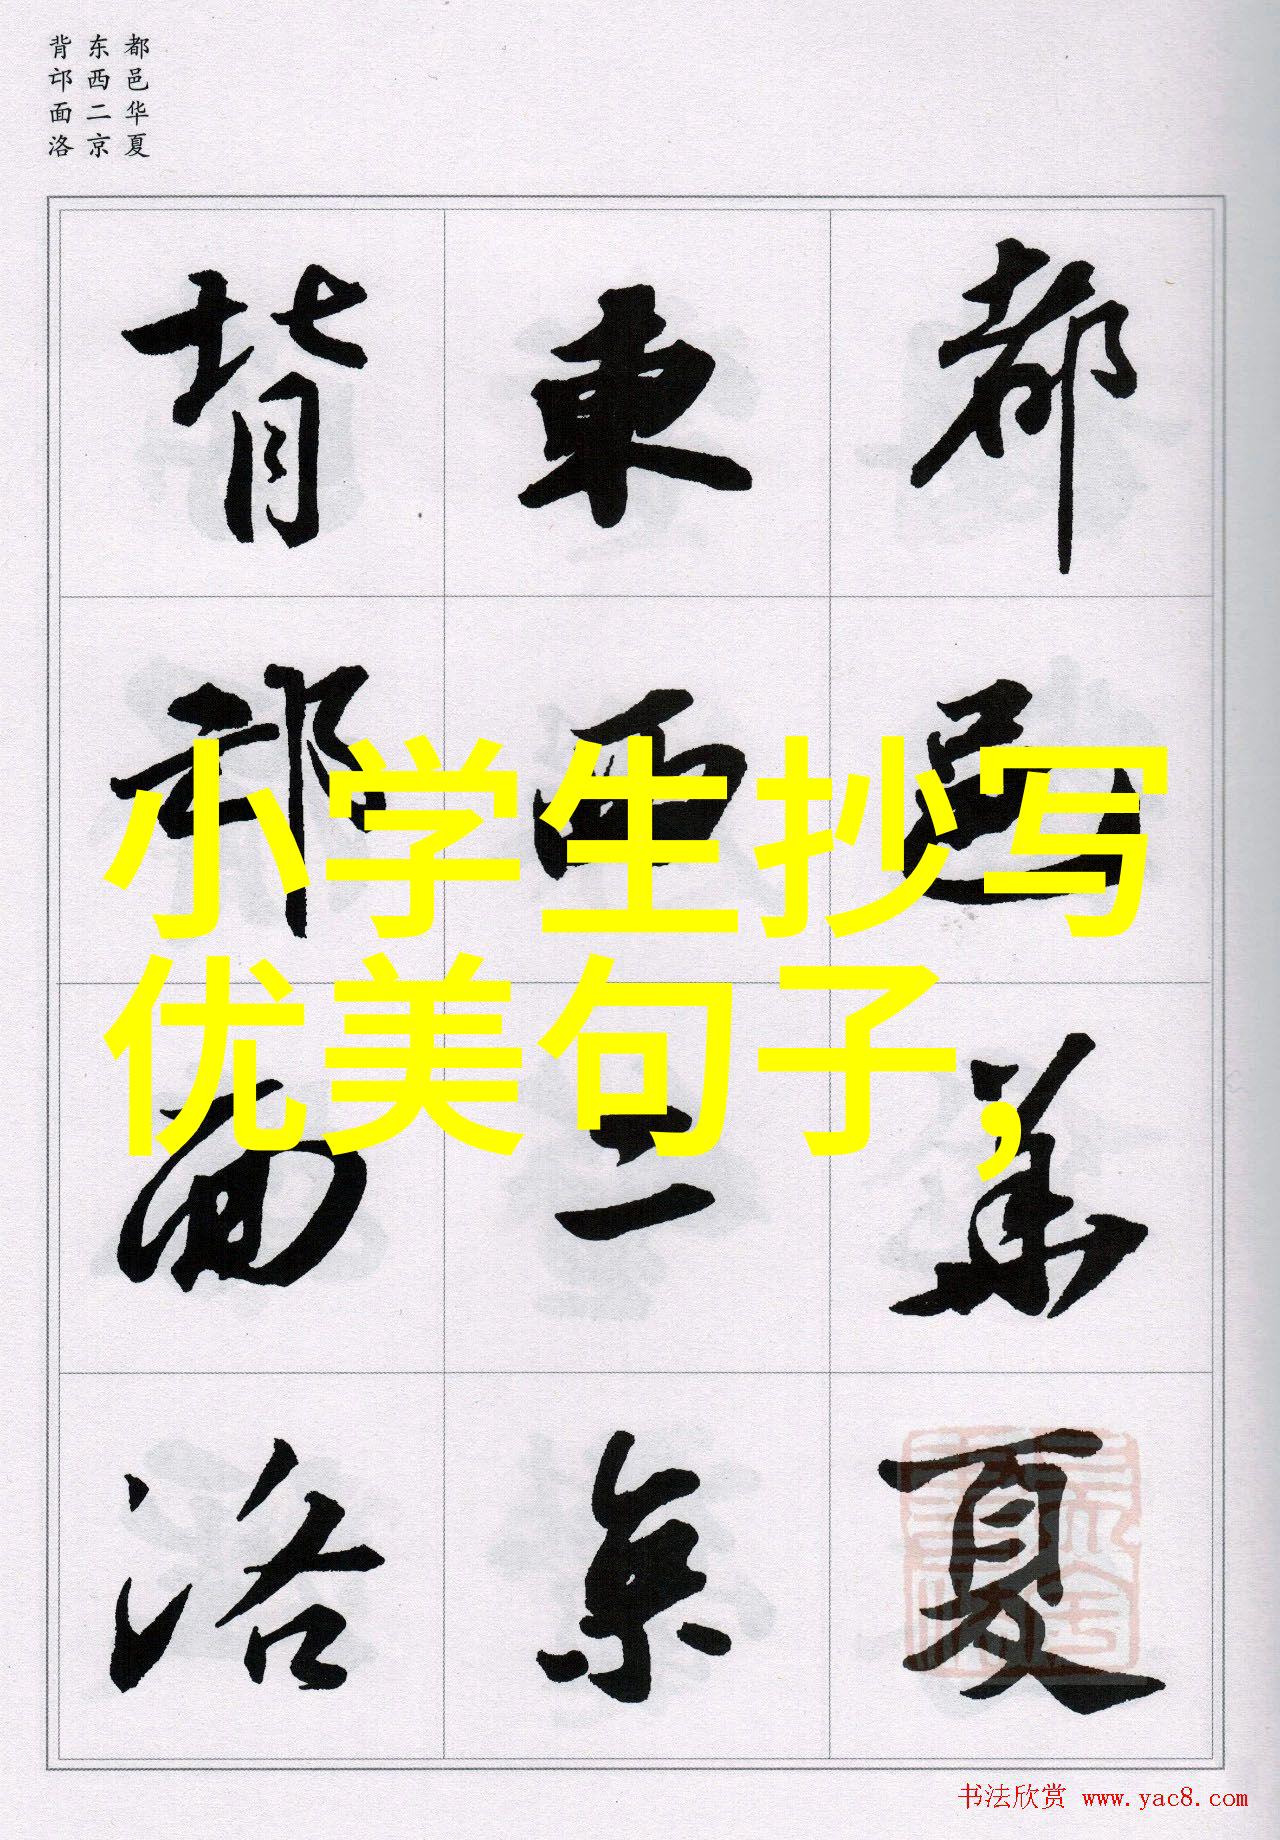 都邑华夏
东西二京
背邙面洛
都邑華夏
東西二京
背邙面洛
小学生抄写
优美句子,
书法欣赏 www.yac8.com